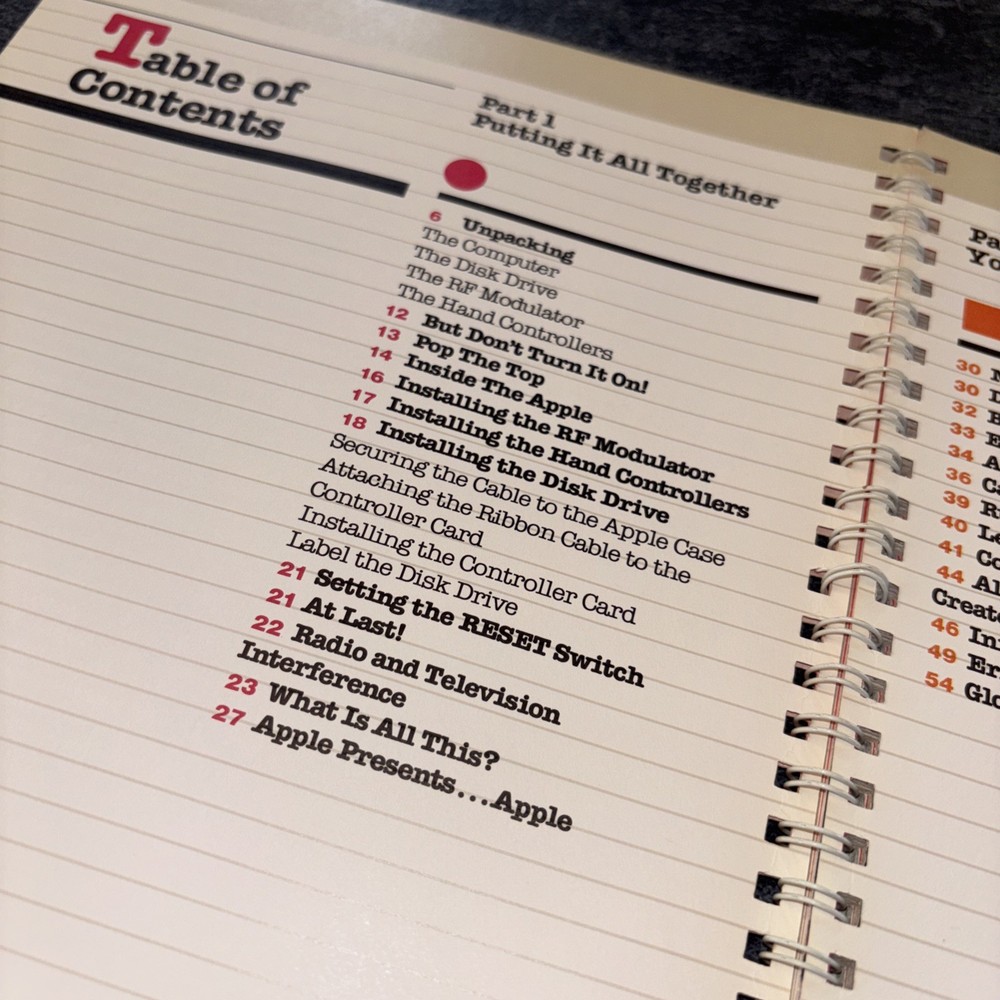 Table of
Contents
Part 1
Putting It All Together
6 Unpacking
The Computer
The Disk Drive
The RF Modulator
The Hand Controllers
12 But Don't Turn It On!
13 Pop The Top
14 Inside The Apple
16 Installing the RF Modulator
17 Installing the Hand Controllers
18 Installing the Disk Drive
Securing the Cable to the Apple Case
Attaching the Ribbon Cable to the
Controller Card
Installing the Controller Card
Label the Disk Drive
21 Setting the RESET Switch
21 At Last!
22 Radio and Television
Interference
23 What Is All This?
27 Apple Presents...Apple
30
30
32
33
34
36
39
40
41
44
46
49
54